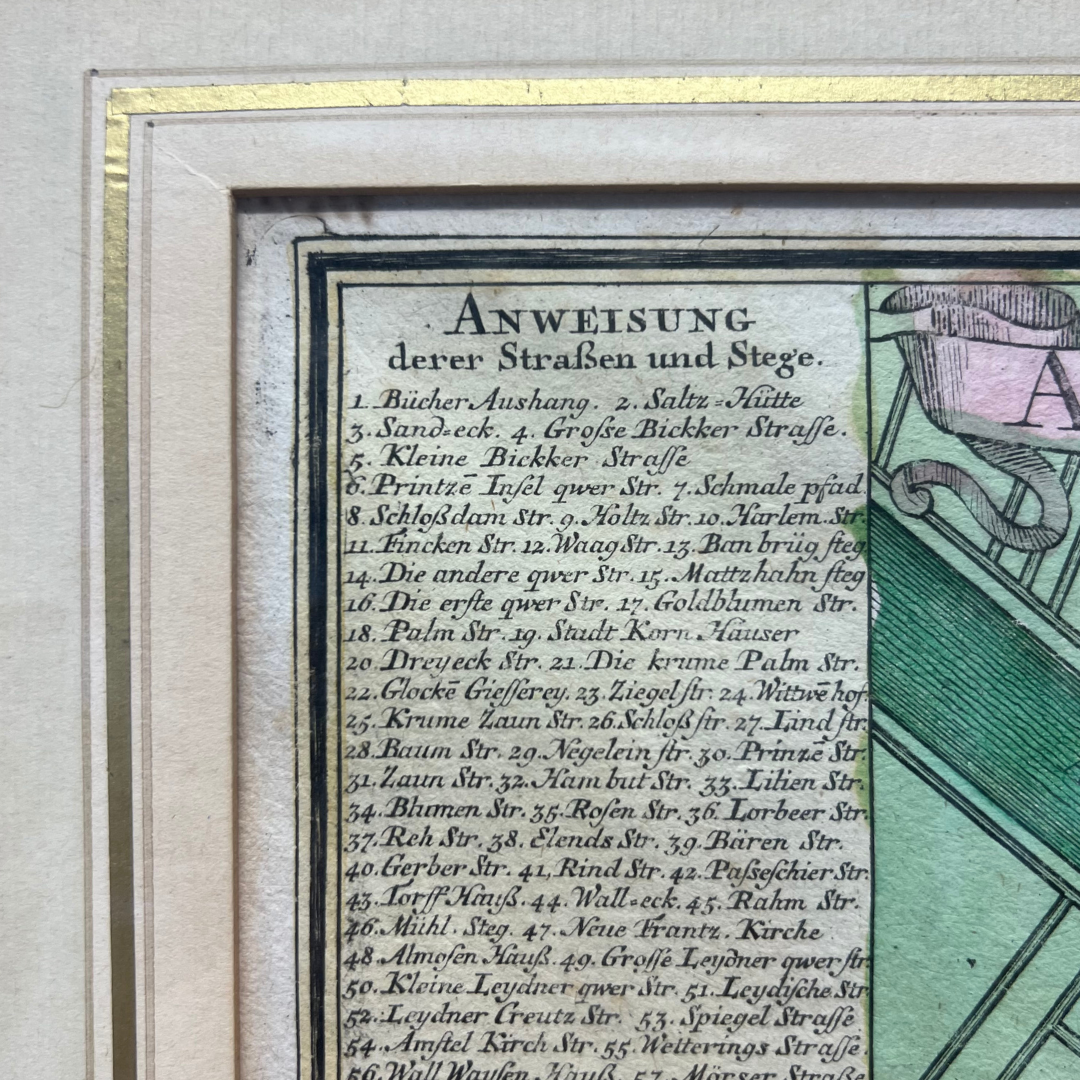 ANWEISUNG
derer Straßen und Stege.
A
1. Bücher Aushang. 2. Saltz=Hütte
3. Sand=eck. 4. Große Bickker Straſſe.
5. Kleine Bickker Straſſe
6. Printzē Inſel qwer Str. 7. Schmale pfad.
8. Schloßdam Str. 9. Holtz Str. 10. Harlem. Str.
11. Fincken Str. 12. Waag Str. 13. Ban brüg ſteg
14. Die andere qwer Str. 15. Mattzhahn ſteg
16. Die erſte qwer Str. 17. Goldblumen Str.
18. Palm Str. 19. Stadt Korn Häuser
20. Dreyeck Str. 21. Die krume Palm Str.
22. Glockē Gieſſerey. 23. Ziegel ſtr. 24. Wittwē hof.
25. Krume Zaun Str. 26. Schloß ſtr. 27. Lind ſtr.
28. Baum Str. 29. Negelein ſtr. 30. Prinzē Str.
31. Zaun Str. 32. Ham but Str. 33. Lilien Str.
34. Blumen Str. 35. Roſen Str. 36. Lorbeer Str.
37. Reh Str. 38. Elends Str. 39. Bären Str.
40. Gerber Str. 41, Rind Str. 42. Paſseſchier Str.
43. Torff Hauß. 44. Wall=eck. 45. Rahm Str.
46. Mühl. Steg. 47. Neue Frantz. Kirche
48. Almoſen Hauß. 49. Groſſe Leydner qwer ſtr.
50. Kleine Leydner qwer Str. 51. Leydiſche Str
52. Leydner Creutz Str. 53. Spiegel Straſſe
54. Amſtel Kirch Str. 55. Wetterings Straſſe.
56. Wall Wayſen Hauß. 57. Mörser Straße